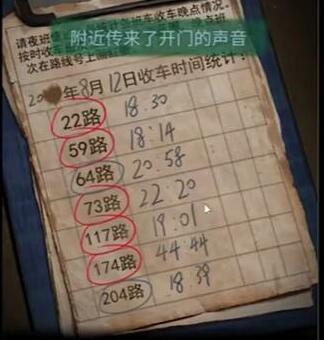 请夜班
班车收车晚点情况。
附近传来了开门的声音
按时收车
次在路线号上画
20 年8月12日收车时间统计：
22路 18:30
59路 18:14
64路 20:58
73路 22:20
117路 19:01
174路 44:44
204路 18:39